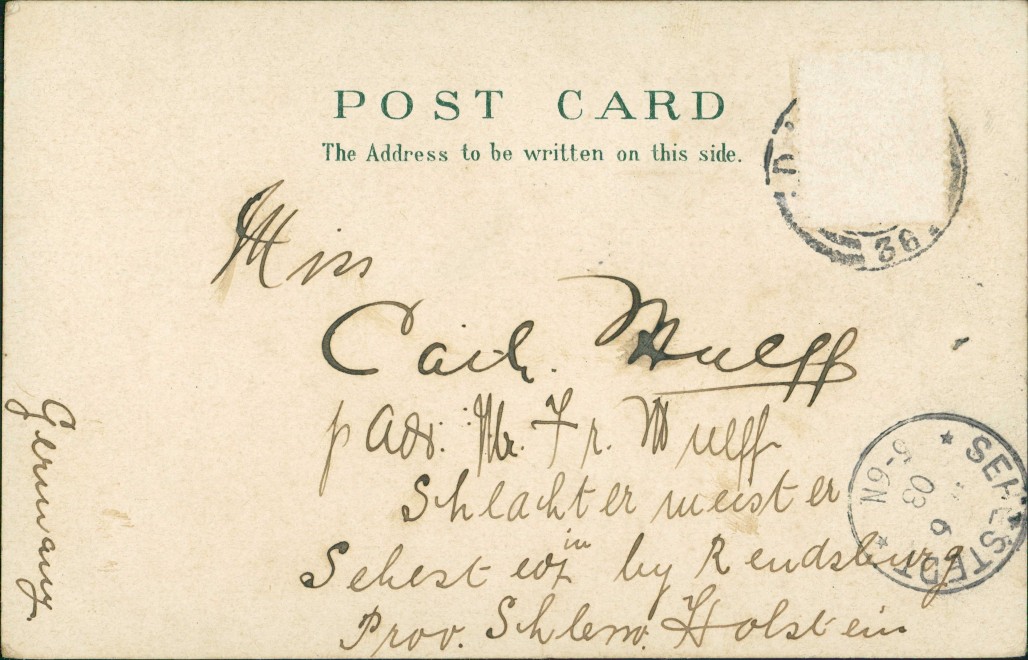 POST CARD
The Address to be written on this side.
36
Miss
Cath. Wulff
p Adr. Mr. Fr. Wulff
Schlachtermeister
in
Sehestedt by Rendsburg
Prov. Schlesw. Holstein
Germany
SEHESTEDT
5-6N